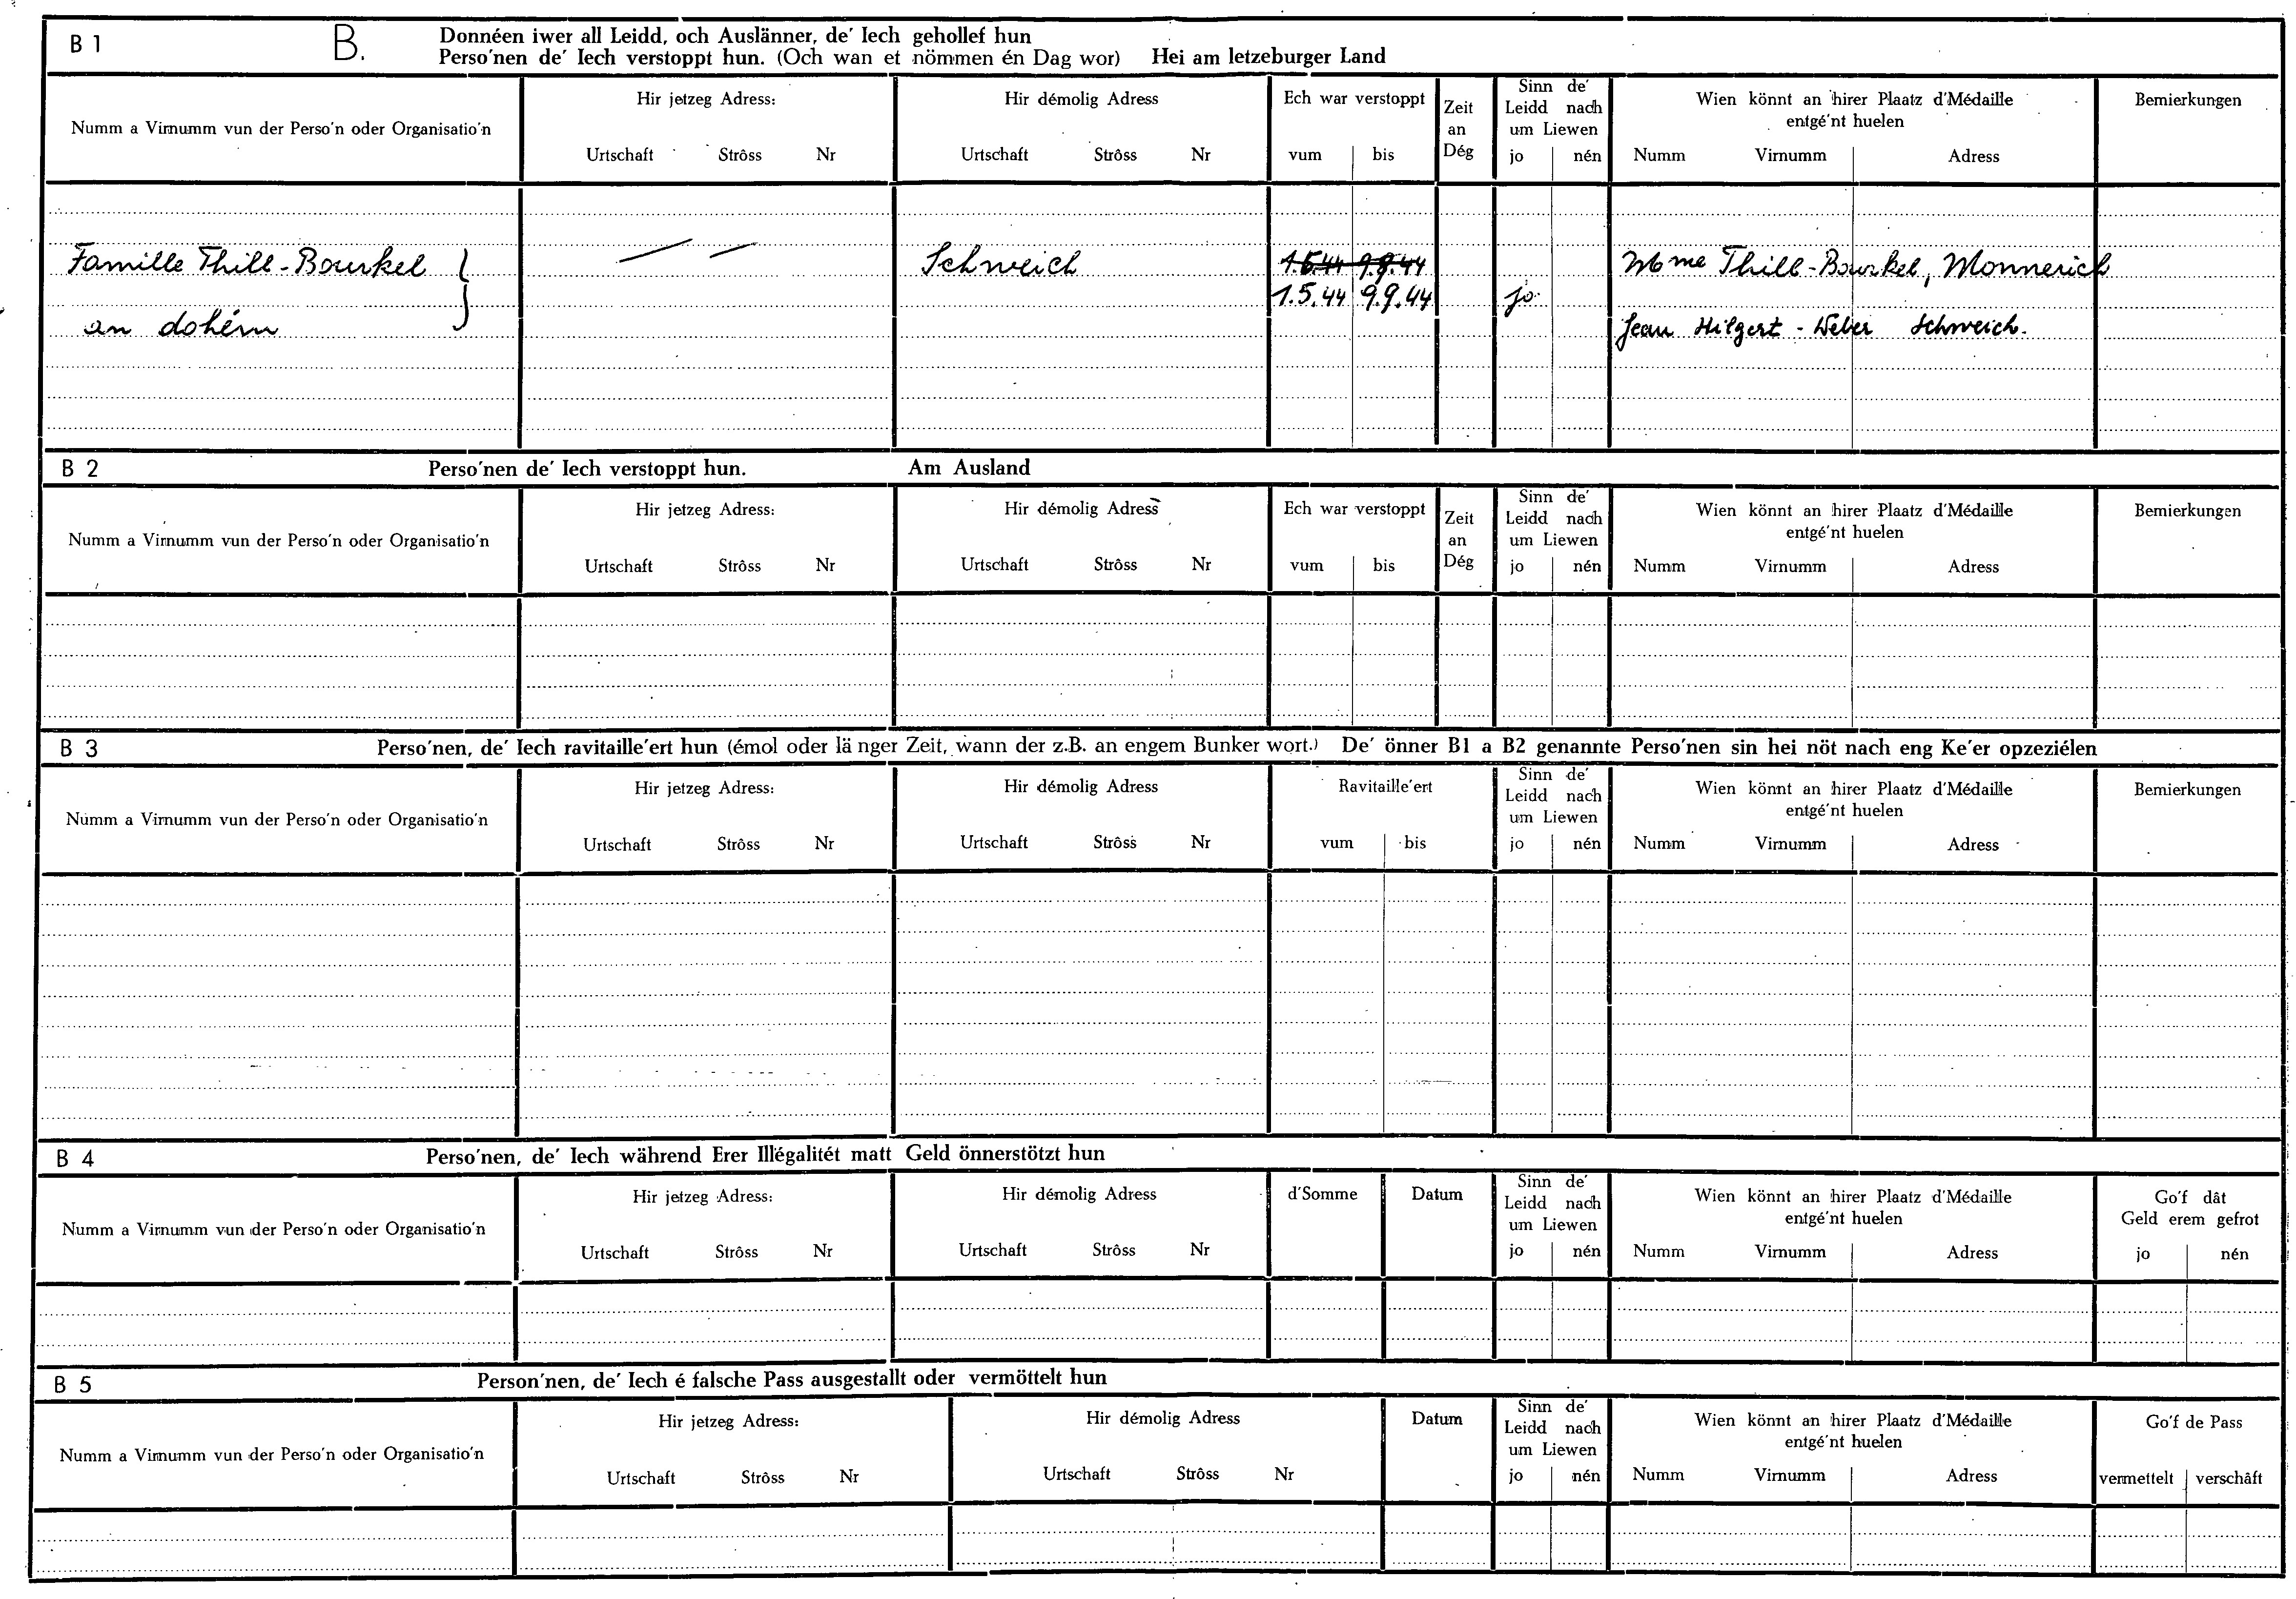 B 1 B. Donnéen iwer all Leidd, och Auslänner, de' Iech gehollef hun
Perso'nen de' Iech verstoppt hun. (Och wan et nömmen én Dag wor) Hei am letzeburger Land
Numm a Virnumm vun der Perso'n oder Organisatio'n
Hir jetzeg Adress:
Urtschaft Strôss Nr
Hir démolig Adress
Urtschaft Strôss Nr
Ech war verstoppt
vum bis
Zeit
an
Dég
Sinn de'
Leidd nach
um Liewen
jo nén
Wien könnt an hirer Plaatz d'Médaille
entgé'nt huelen
Numm Virnumm Adress
Bemierkungen
Famille Thill-Bourkel Schweich 1.5.44 9.9.44 Mme Thill-Bourkel, Monnerich
1.5.44 9.9.44 jo
an dohém Jean Hilgert - Weber Schweich.
B 2 Perso'nen de' Iech verstoppt hun. Am Ausland
Numm a Virnumm vun der Perso'n oder Organisatio'n
Hir jetzeg Adress:
Urtschaft Strôss Nr
Hir démolig Adress
Urtschaft Strôss Nr
Ech war verstoppt
vum bis
Zeit
an
Dég
Sinn de'
Leidd nach
um Liewen
jo nén
Wien könnt an hirer Plaatz d'Médaille
entgé'nt huelen
Numm Virnumm Adress
Bemierkungen
B 3 Perso'nen, de' Iech ravitaille'ert hun (émol oder länger Zeit, wann der z.B. an engem Bunker wort.) De' önner B1 a B2 genannte Perso'nen sin hei nöt nach eng Ke'er opzeziélen
Numm a Virnumm vun der Perso'n oder Organisatio'n
Hir jetzeg Adress:
Urtschaft Strôss Nr
Hir démolig Adress
Urtschaft Strôss Nr
Ravitaille'ert
vum bis
Sinn de'
Leidd nach
um Liewen
jo nén
Wien könnt an hirer Plaatz d'Médaille
entgé'nt huelen
Numm Virnumm Adress
Bemierkungen
B 4 Perso'nen, de' Iech während Erer Illégalitét matt Geld önnerstötzt hun
Numm a Virnumm vun der Perso'n oder Organisatio'n
Hir jetzeg Adress:
Urtschaft Strôss Nr
Hir démolig Adress
Urtschaft Strôss Nr
d'Somme
Datum
Sinn de'
Leidd nach
um Liewen
jo nén
Wien könnt an hirer Plaatz d'Médaille
entgé'nt huelen
Numm Virnumm Adress
Go'f dât
Geld erem gefrot
jo nén
B 5 Person'nen, de' Iech é falsche Pass ausgestallt oder vermöttelt hun
Numm a Virnumm vun der Perso'n oder Organisatio'n
Hir jetzeg Adress:
Urtschaft Strôss Nr
Hir démolig Adress
Urtschaft Strôss Nr
Datum
Sinn de'
Leidd nach
um Liewen
jo nén
Wien könnt an hirer Plaatz d'Médaille
entgé'nt huelen
Numm Virnumm Adress
Go'f de Pass
vermettelt verschâft